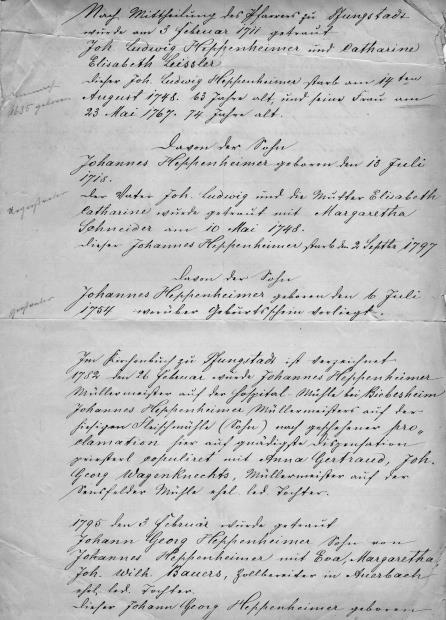 Nach Mittheilung des Pfarrers zu Pfungstadt
wurde am 3 Februar 1711 getraut
Joh. Ludwig Heppenheimer und Catharine
Elisabeth Geissler
Dieser Joh. Ludwig Heppenheimer starb am 14ten
August 1748. 63 Jahre alt, und seine Frau am
23 Mai 1767. 74 Jahre alt.
1685 geboren
Davon der Sohn
Johannes Heppenheimer geboren den 13 Juli
1718.
Der Vater Joh. Ludwig und die Mutter Elisabeth
Catharine wurde getraut mit Margaretha
Schneider am 10 Mai 1748.
Dieser Johannes Heppenheimer starb den 2 Septbr 1797
Urgroßvater
Davon der Sohn
Johannes Heppenheimer geboren den 6 Juli
1754 worüber Geburtsschein vorliegt.
Großvater
Im Kirchenbuch zu Pfungstadt ist verzeichnet
1782 den 26 Februar wurde Johannes Heppenheimer
Müllermeister auf der Hospital-Mühle bei Biebesheim
Johannes Heppenheimer Müllermeisters auf der
hiesigen Mühle (Sohn) nach geschehener pro„
clamation hier auf gnädigste Dispensation
priesterl. copuliret mit Anna Gertraud, Joh.
Georg Wagenknechts, Müllermeister auf der
Sensfelder Mühle ehel. led. Tochter.
1795 den 3 Februar wurde getraut
Johann Georg Heppenheimer Sohn von
Johannes Heppenheimer mit Eva, Margaretha
Joh. Wilh. Bauers, Zollbereiter in Auerbach
ehl. led. Tochter.
Dieser Johann Georg Heppenheimer geboren